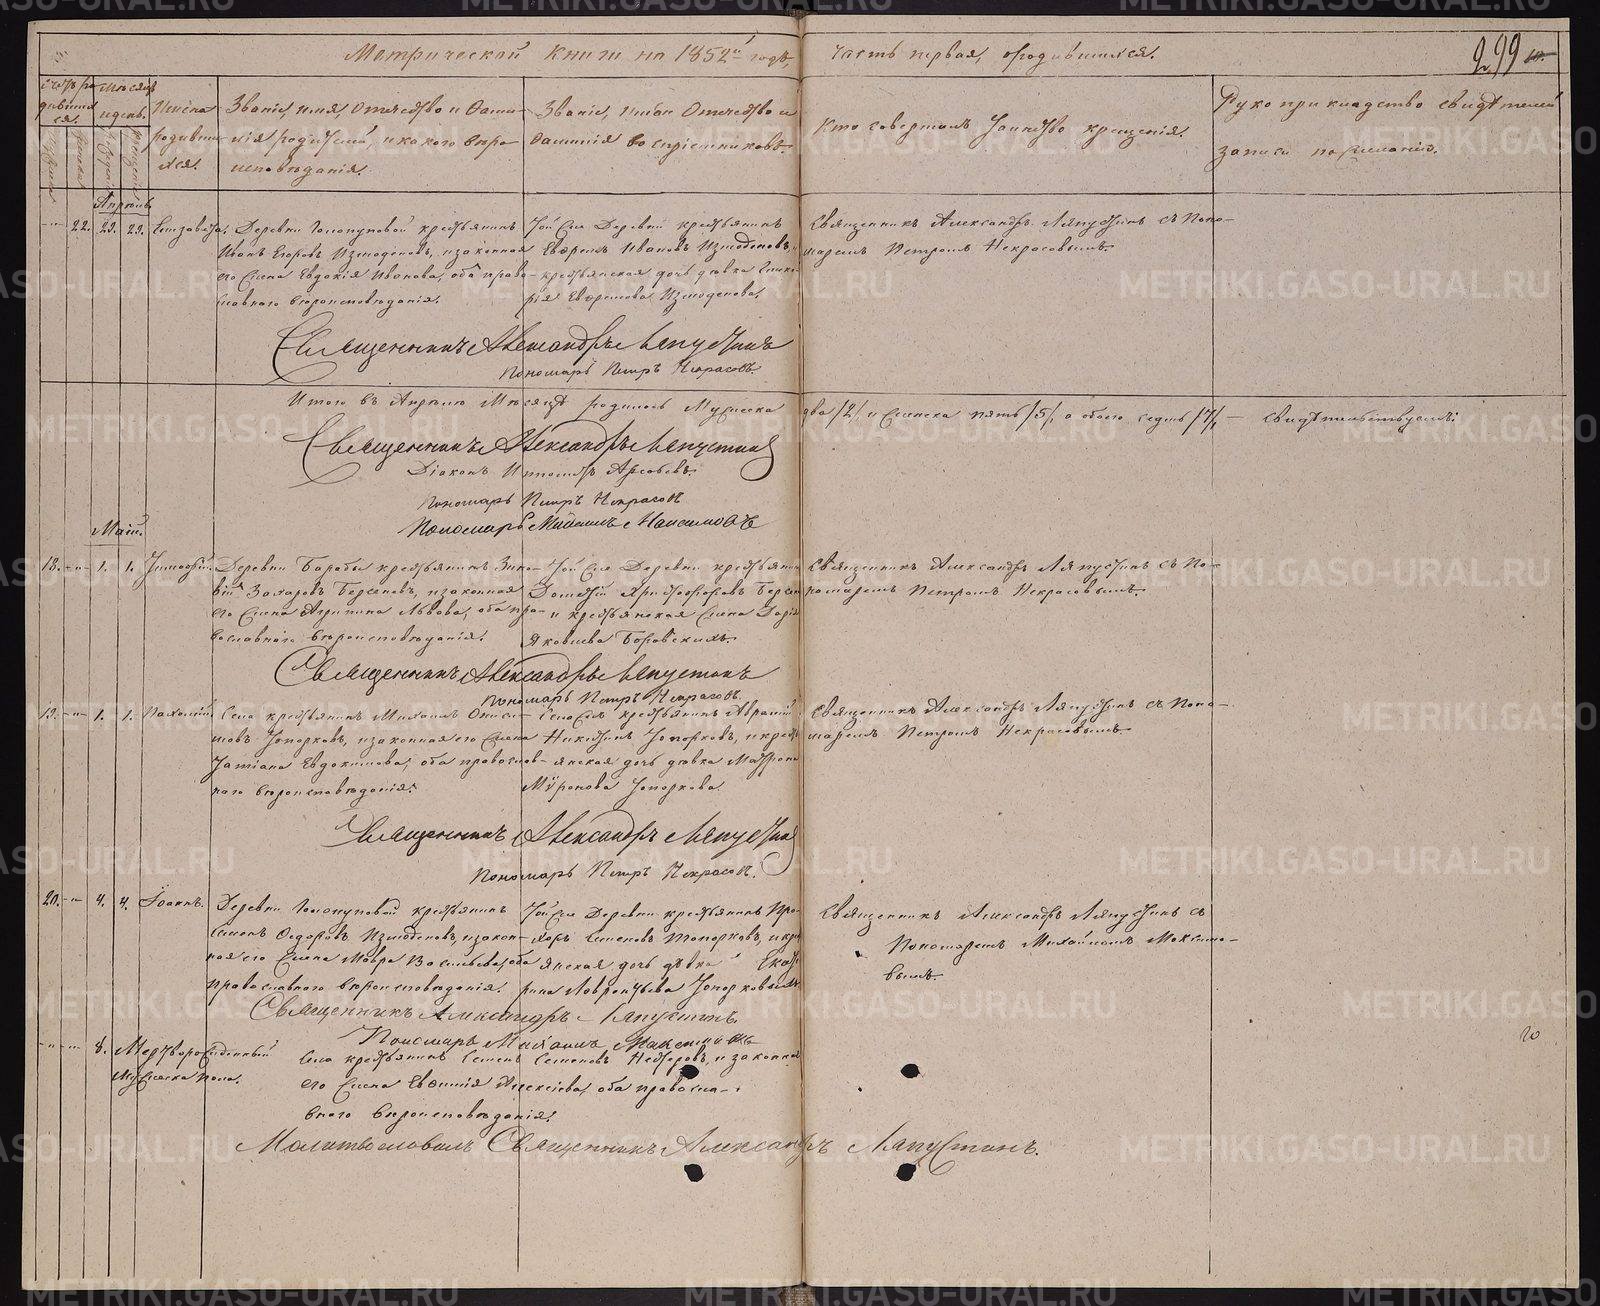 Метрической книги на 1852й годъ, часть первая, о родившихся.
299
Счетъ родившихся.
Мѣсяцъ и день.
Имена родившихся.
Званіе, имя, отчество и фамилія родителей, и какого вѣроисповѣданія.
Званіе, имя, отчество и фамилія воспріемниковъ.
Кто совершалъ таинство крещенія.
Рукоприкладство свидѣтелей записи по желанію.
Апрѣль
22. 23. 23. Елизавета.
Деревни Голопуповой крестьянинъ
Иванъ Егоровъ Измоденовъ, и законная
его жена Евдокія Иванова, оба право-
славнаго вѣроисповѣданія.
Той же деревни крестьянинъ
Ефремъ Ивановъ Измоденовъ, и
крестьянская дочь дѣвка
Ефремова Измоденова.
Священникъ Александръ Ляпустинъ съ Поно-
маремъ Петромъ Некрасовымъ.
Священникъ Александръ Ляпустинъ
Пономарь Петръ Некрасовъ.
Итого въ Апрѣлѣ мѣсяцѣ родилось мужеска два /2/, и женска пять /5/, а обоего седмь /7/, — свидѣтельствуемъ:
Священникъ Александръ Ляпустинъ
Діаконъ
Пономарь Петръ Некрасовъ
Пономарь Михаилъ Максимовъ
Май.
18. 1. 1. Тимофей.
Деревни крестьянинъ Зино-
вій Захаровъ, и законная
его жена Агрипина Львова, оба пра-
вославнаго вѣроисповѣданія.
Той же деревни крестьянинъ
Христофоровъ
и крестьянская жена Дарья
Яковлева Боровскихъ.
Священникъ Александръ Ляпустинъ съ По-
номаремъ Петромъ Некрасовымъ.
Священникъ Александръ Ляпустинъ
Пономарь Петръ Некрасовъ.
19. 1. 1. Пахомій.
Села крестьянинъ Михаилъ Ониси-
мовъ Топорковъ, и законная его жена
Татіана Евдокимова, оба православ-
наго вѣроисповѣданія.
Села же крестьянинъ Аврамій
Никитинъ Топорковъ, и кресть-
янская дочь дѣвка Матрона
Миронова Топоркова.
Священникъ Александръ Ляпустинъ съ Поно-
маремъ Петромъ Некрасовымъ.
Священникъ Александръ Ляпустинъ
Пономарь Петръ Некрасовъ.
20. 4. 4. Іоаннъ.
Деревни Голопуповой крестьянинъ
Семенъ Федоровъ Измоденовъ, и закон-
ная его жена Мавра Васильева, оба
православнаго вѣроисповѣданія.
Той же деревни крестьянинъ Про-
хоръ Семеновъ Топорковъ, и крест-
янская дочь дѣвка Екате-
рина Лаврентьева Топорковыхъ.
Священникъ Александръ Ляпустинъ съ
Пономаремъ Михаиломъ Максимо-
вымъ.
Священникъ Александръ Ляпустинъ.
Пономарь Михаилъ Максимовъ
8. Мертворожденный
мужеска пола.
Села крестьянинъ Семенъ Семеновъ, и законная
его жена Евфимія Алексіева, оба правосла-
внаго вѣроисповѣданія.
Молитвословилъ Священникъ Александръ Ляпустинъ.
METRIKI.GASO-URAL.RU